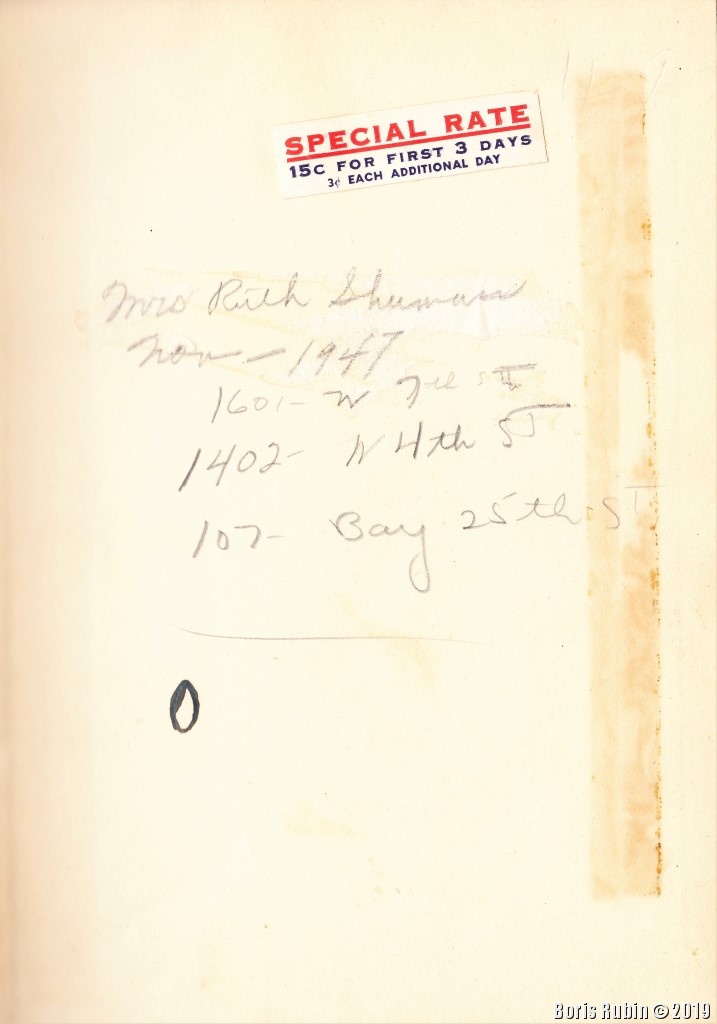 SPECIAL RATE
15C FOR FIRST 3 DAYS
3¢ EACH ADDITIONAL DAY
Mrs Ruth Shuman
Nov - 1947
1601- W 7th ST
1402- W 4th ST
107- Bay 25th ST
0
Boris Rubin © 2019